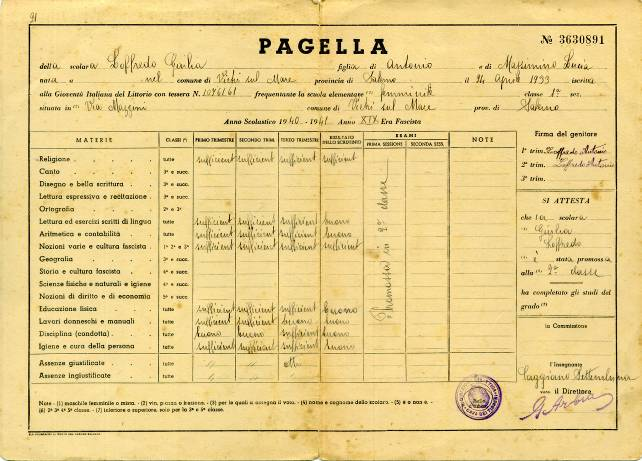 91
PAGELLA
№ 3630891
della scolara Loffredo Giulia figlia di Antonio e di Massimino Lucia
nata a nel comune di Vietri sul Mare provincia di Salerno il 24 Aprile 1933 iscritta
alla Gioventù Italiana del Littorio con tessera N. 1076161 frequentante la scuola elementare femminile classe 1ª sez.
situata in Via Mazzini comune di Vietri sul Mare prov. di Salerno
Anno Scolastico 1940-1941 Anno XIX Era Fascista
MATERIE CLASSI PRIMO TRIMESTRE SECONDO TRIM. TERZO TRIMESTRE RISULTATO DELLO SCRUTINIO ESAMI PRIMA SESSIONE SECONDA SESS. NOTE
Religione tutte sufficient sufficient sufficient sufficient
Canto 3ª e succ.
Disegno e bella scrittura 3ª e succ.
Lettura espressiva e recitazione 3ª e succ.
Ortografia 2ª e 3ª
Lettura ed esercizi scritti di lingua tutte sufficient sufficient sufficient buono
Aritmetica e contabilità tutte sufficient sufficient sufficient buono
Nozioni varie e cultura fascista 1ª 2ª e 3ª sufficient sufficient sufficient sufficient
Geografia 3ª e succ.
Storia e cultura fascista 4ª e succ.
Scienze fisiche e naturali e igiene 4ª e succ.
Nozioni di diritto e di economia 5ª e succ.
Educazione fisica tutte sufficient sufficient sufficient buono
Lavori donneschi e manuali tutte sufficient sufficient buono buono
Disciplina (condotta) tutte buono buono sufficient buono
Igiene e cura della persona tutte sufficient sufficient sufficient buono
Assenze giustificate tutte
Assenze ingiustificate tutte
Promossa in 2ª classe
Firma del genitore
1° trim. Loffredo Antonio
2° trim. Loffredo Antonio
3° trim.
SI ATTESTA
che la scolara
Giulia
Loffredo
è stata promossa
alla 2ª classe
ha completato gli studi del
grado
la Commissione
l'insegnante
visto, il Direttore
Note - (1) maschile femminile o mista. - (2) via, piazza o frazione. - (3) per le quali si assegna il voto. - (4) nome e cognome dello scolaro. - (5) è o non è. -
(6) 2ª 3ª 4ª 5ª classe. - (7) inferiore o superiore, solo per la 3ª e 5ª classe.